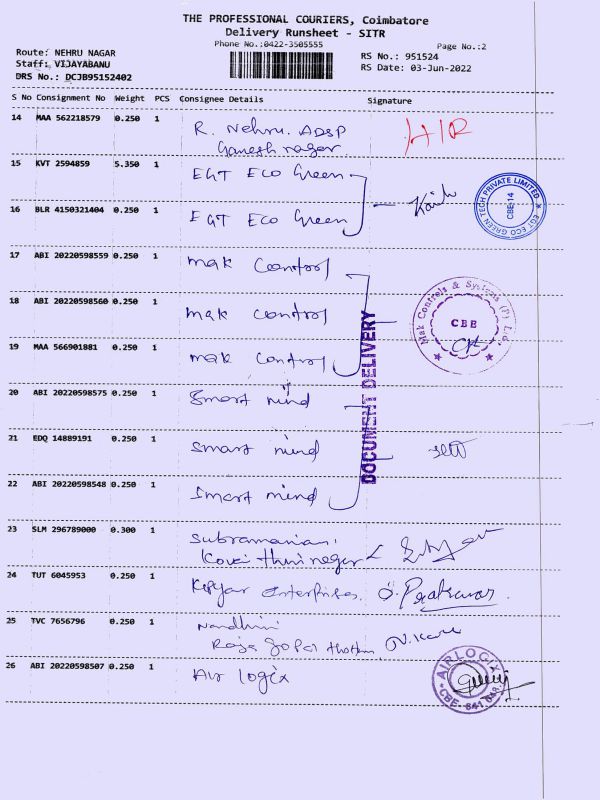 THE PROFESSIONAL COURIERS, Coimbatore
Delivery Runsheet - SITR
Phone No.:0422-3505555
Page No.:2
Route: NEHRU NAGAR
Staff: VIJAYABANU
DRS No.: DCJB95152402
RS No.: 951524
RS Date: 03-Jun-2022
S No Consignment No Weight PCS Consignee Details Signature
14 MAA 562218579 0.250 1 R. Nehru. ADSP HIR
Ganesh nagar.
15 KVT 2594859 5.350 1 EGT ECO Green
16 BLR 4150321404 0.250 1 EGT ECO Green
EGT ECO GREEN TECH PRIVATE LIMITED
CBE-14
17 ABI 20220598559 0.250 1 mak control
18 ABI 20220598560 0.250 1 mak control
Mak Controls & Systems (P) Ltd.,
CBE
19 MAA 566901881 0.250 1 mak control
DOCUMENT DELIVERY
20 ABI 20220598575 0.250 1 Smart mind
21 EDQ 14889191 0.250 1 smart mind
22 ABI 20220598548 0.250 1 Smart mind
23 SLM 296789000 0.300 1 Subramanian.
24 TUT 6045953 0.250 1 Enterprises
25 TVC 7656796 0.250 1 Nandhini
Raja Gopal thottam N.
26 ABI 20220598507 0.250 1 Air logix
AIRLOGIX
CBE-641 048.